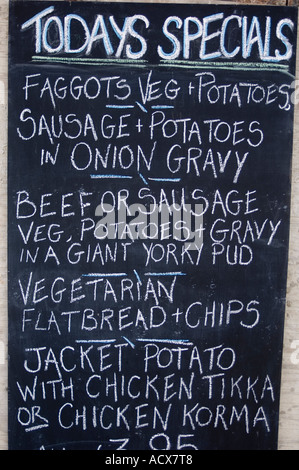 TODAYS SPECIALS
FAGGOTS VEG + POTATOES
SAUSAGE + POTATOES
IN ONION GRAVY
BEEF OR SAUSAGE
VEG, POTATOES + GRAVY
IN A GIANT YORKY PUD
VEGETARIAN
FLATBREAD + CHIPS
JACKET POTATO
WITH CHICKEN TIKKA
OR CHICKEN KORMA
3.95
alamy
Image ID: ACX7T8
www.alamy.com